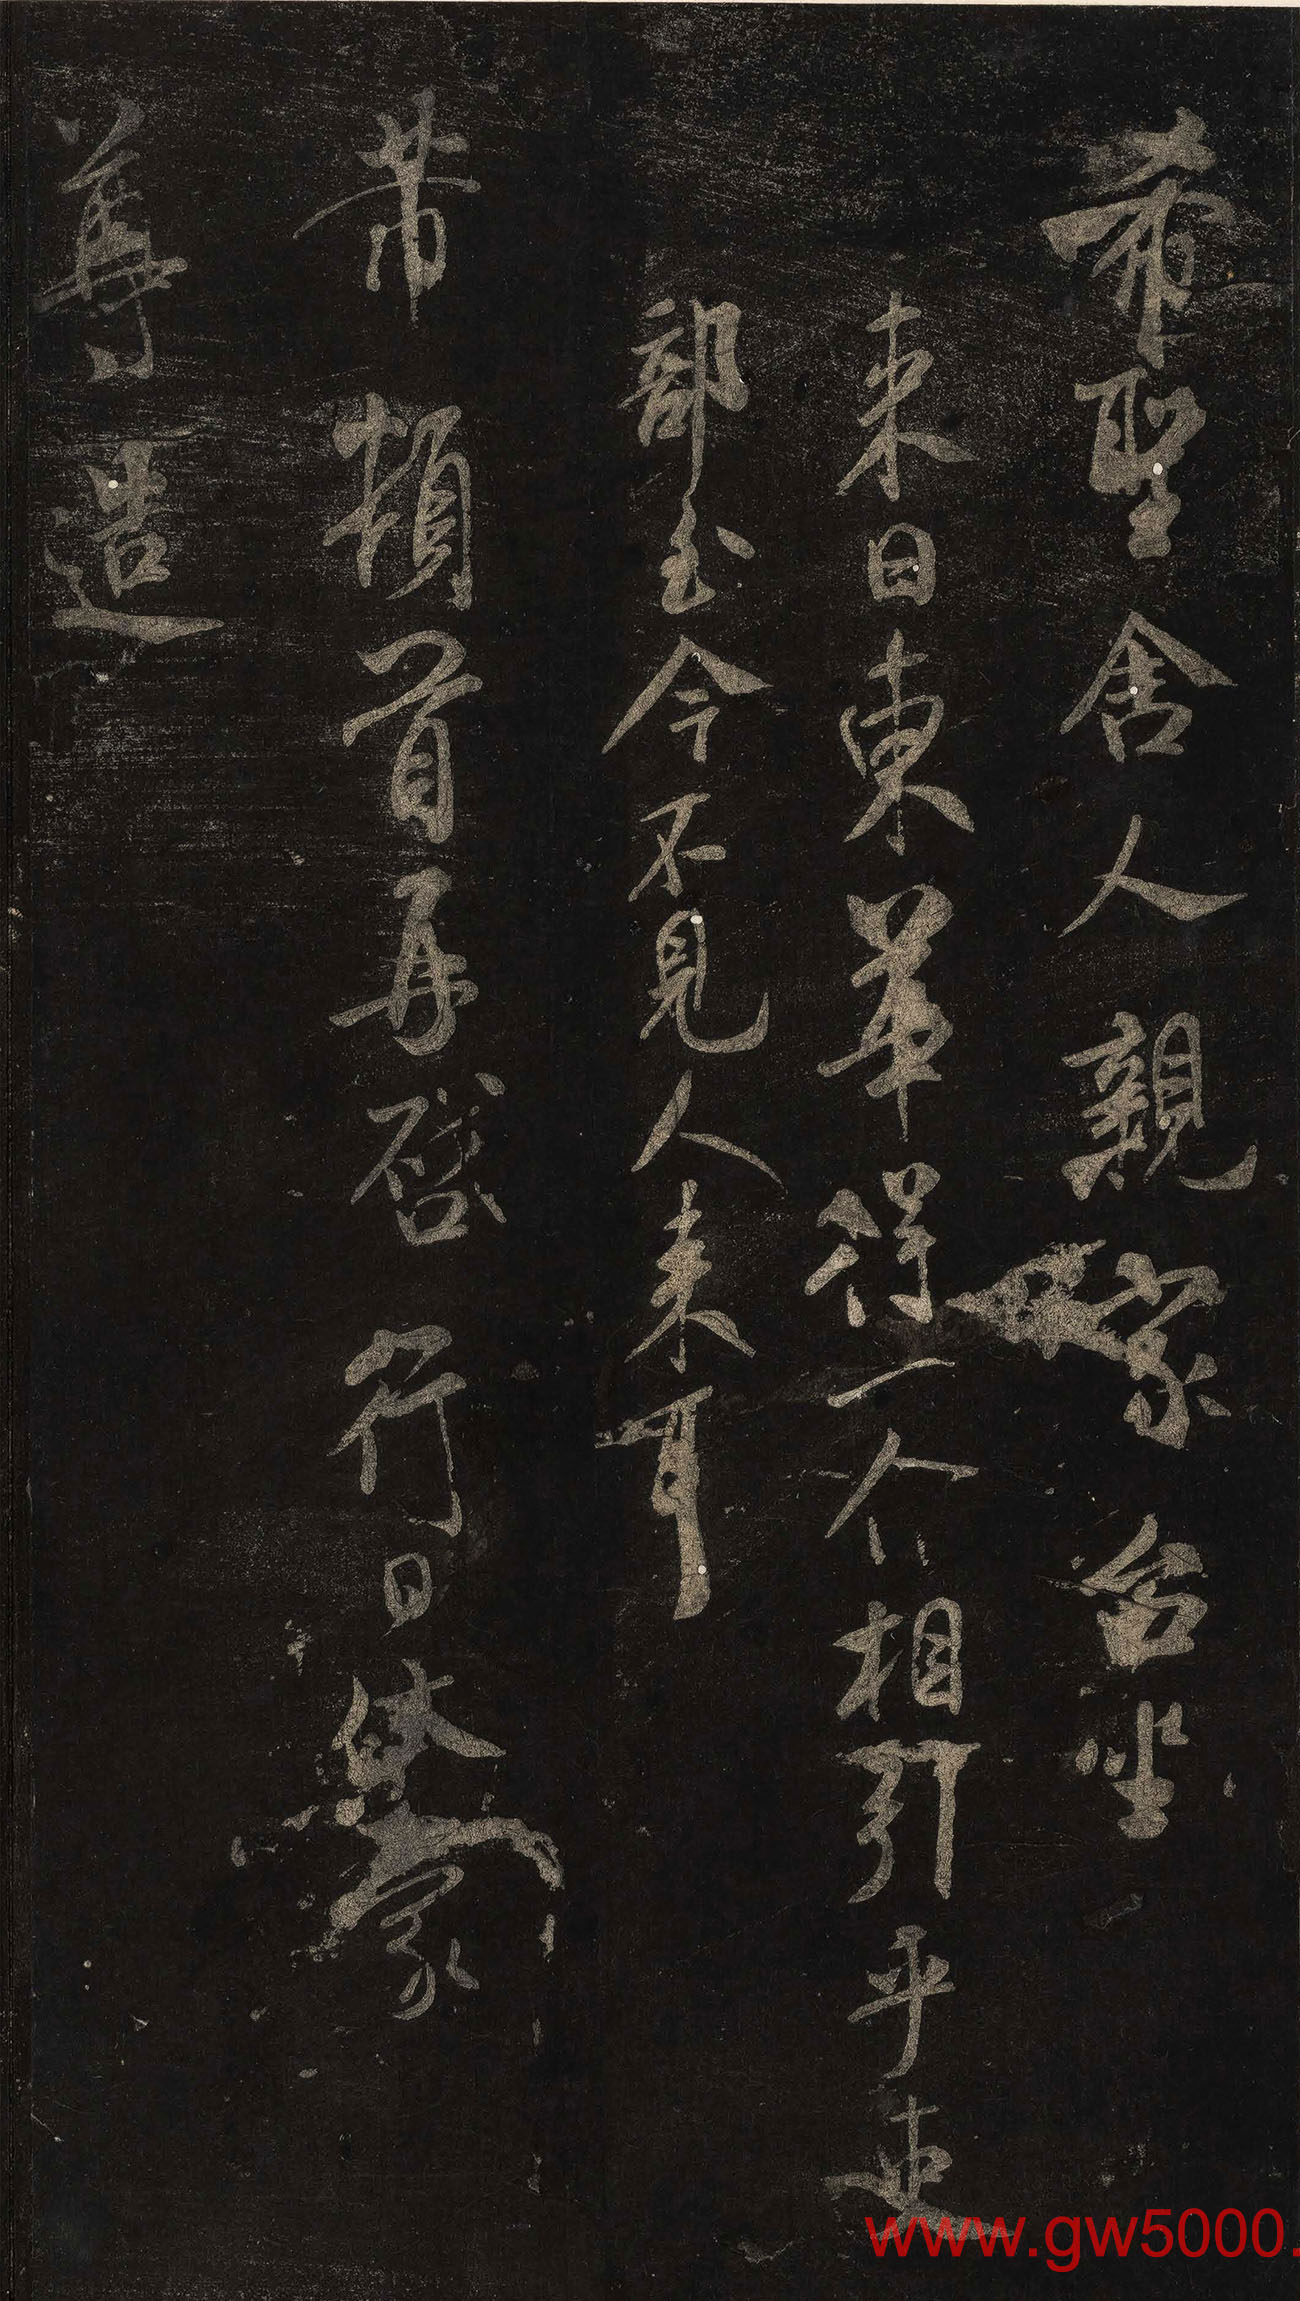 希聖舍人親家台坐
来日東華得一介相引乎吏
部至今不見人来耳
芾頓首再啓 行日休蒙
尊造
www.gw5000.